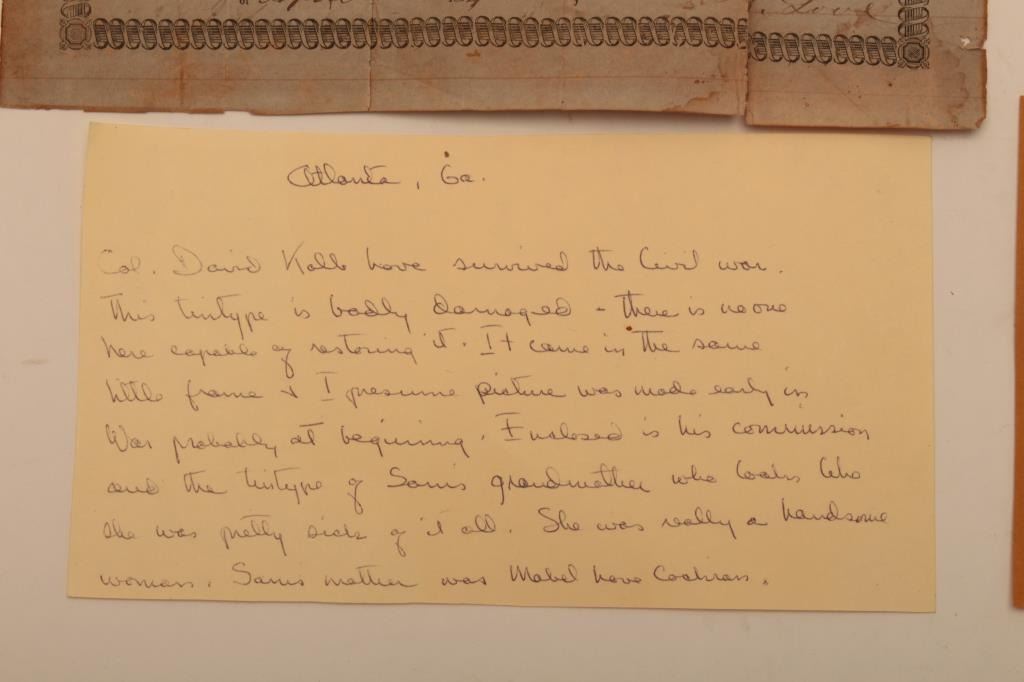 Love
Atlanta, Ga.
Col. David Kolb Love survived the Civil war.
This tintype is badly damaged - there is no one
here capable of restoring it. It came in the same
little frame & I presume picture was made early in
War probably at beginning. Enclosed is his commission
and the tintype of Sam's grandmother who looks like
she was pretty sick of it all. She was really a handsome
woman. Sam's mother was Mabel Love Cochran.